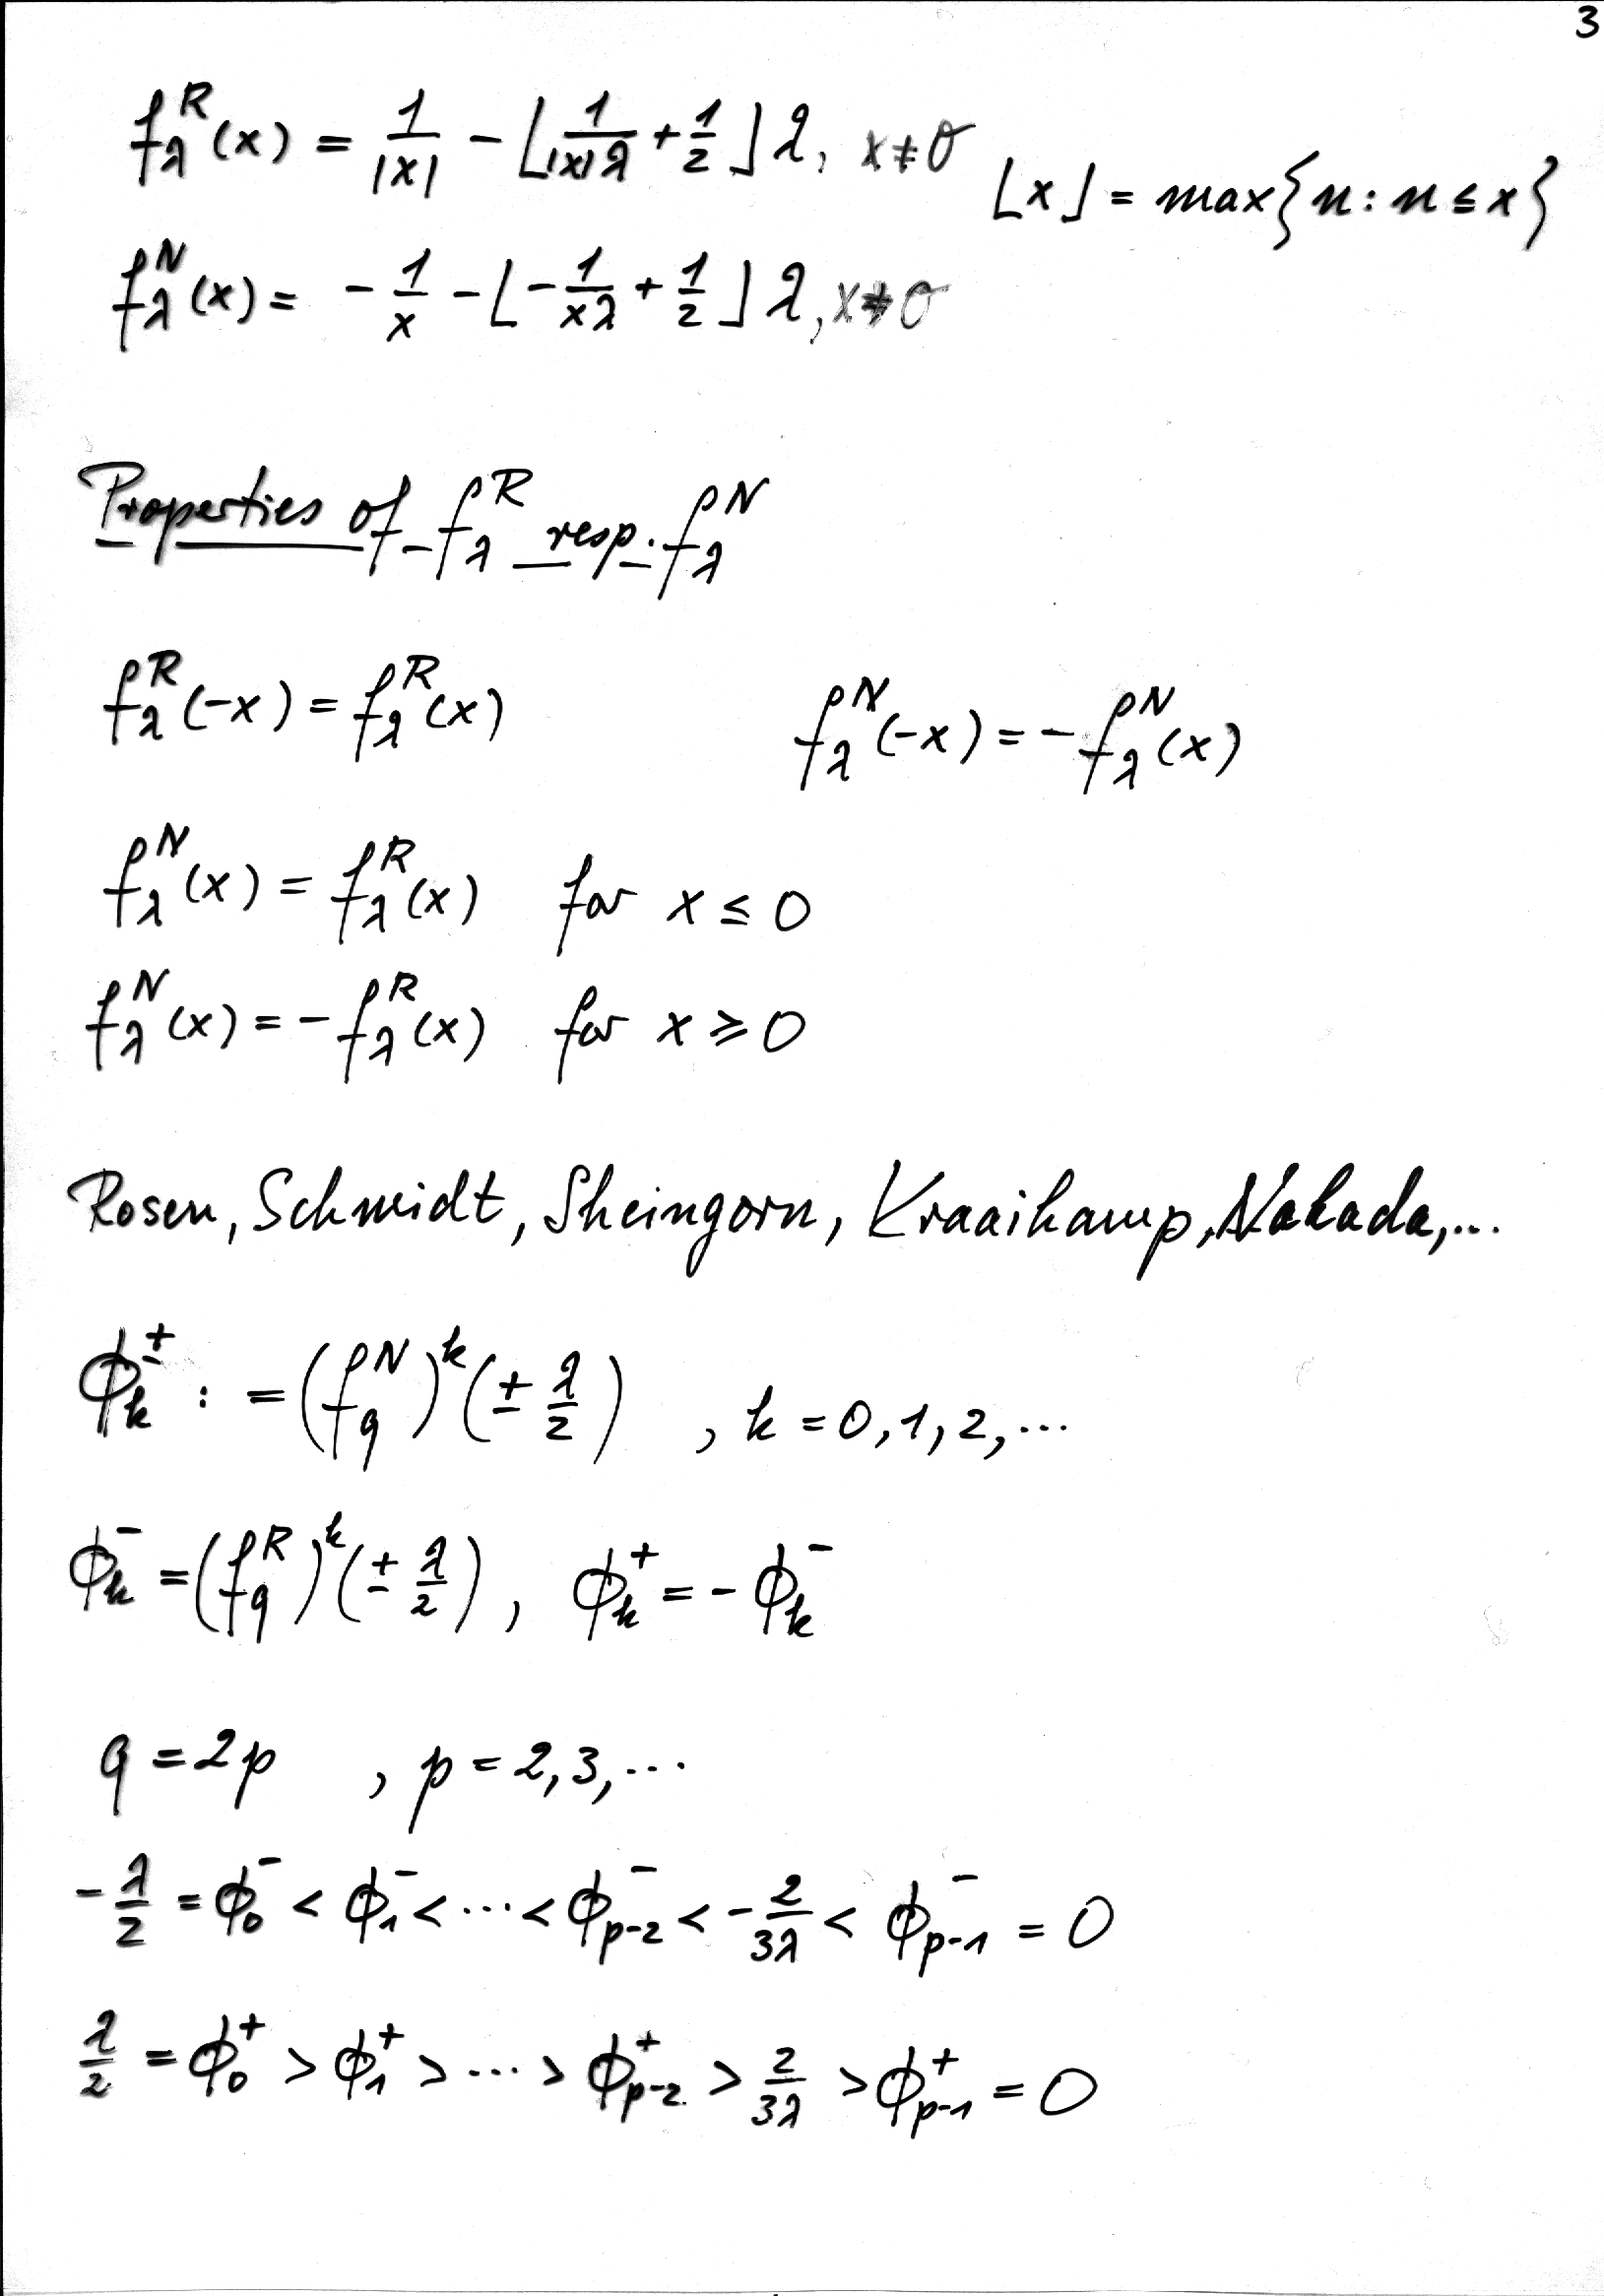 3
f_λ^R(x) = 1/|x| - ⌊1/(|x|λ) + 1/2⌋λ, x≠0
⌊x⌋ = max{n : n ≤ x}
f_λ^N(x) = -1/x - ⌊-1/(xλ) + 1/2⌋λ, x≠0
Properties of f_λ^R resp. f_λ^N
f_λ^R(-x) = f_λ^R(x)
f_λ^N(-x) = -f_λ^N(x)
f_λ^N(x) = f_λ^R(x) for x ≤ 0
f_λ^N(x) = -f_λ^R(x) for x ≥ 0
Rosen, Schmidt, Sheingorn, Kraaikamp, Nakada, ...
ϕ_k^± := (f_q^N)^k (± λ/2) , k = 0, 1, 2, ...
ϕ_k^- = (f_q^R)^k (± λ/2) , ϕ_k^+ = -ϕ_k^-
q = 2p , p = 2, 3, ...
-λ/2 = ϕ_0^- < ϕ_1^- < ... < ϕ_{p-2}^- < -2/(3λ) < ϕ_{p-1}^- = 0
λ/2 = ϕ_0^+ > ϕ_1^+ > ... > ϕ_{p-2}^+ > 2/(3λ) > ϕ_{p-1}^+ = 0